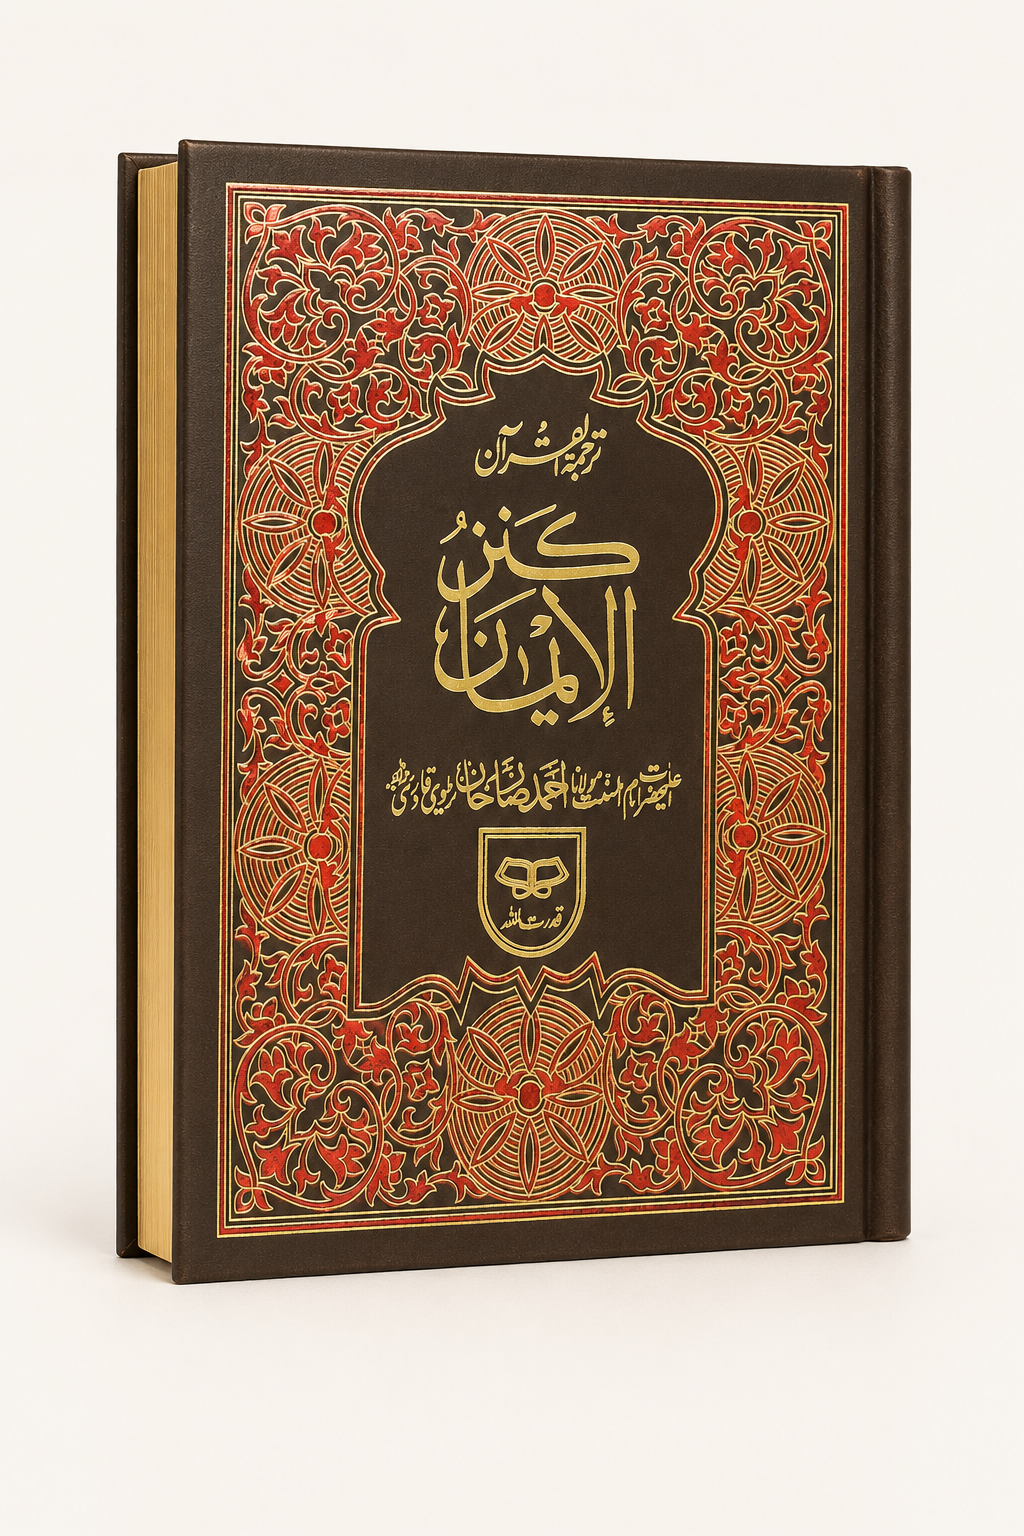 ترجمۃ القرآن
کنز
الإیمان
اعلیٰحضرت امام اہلسنت مولانا احمد رضا خان بریلوی قادری
قدرت اللہ